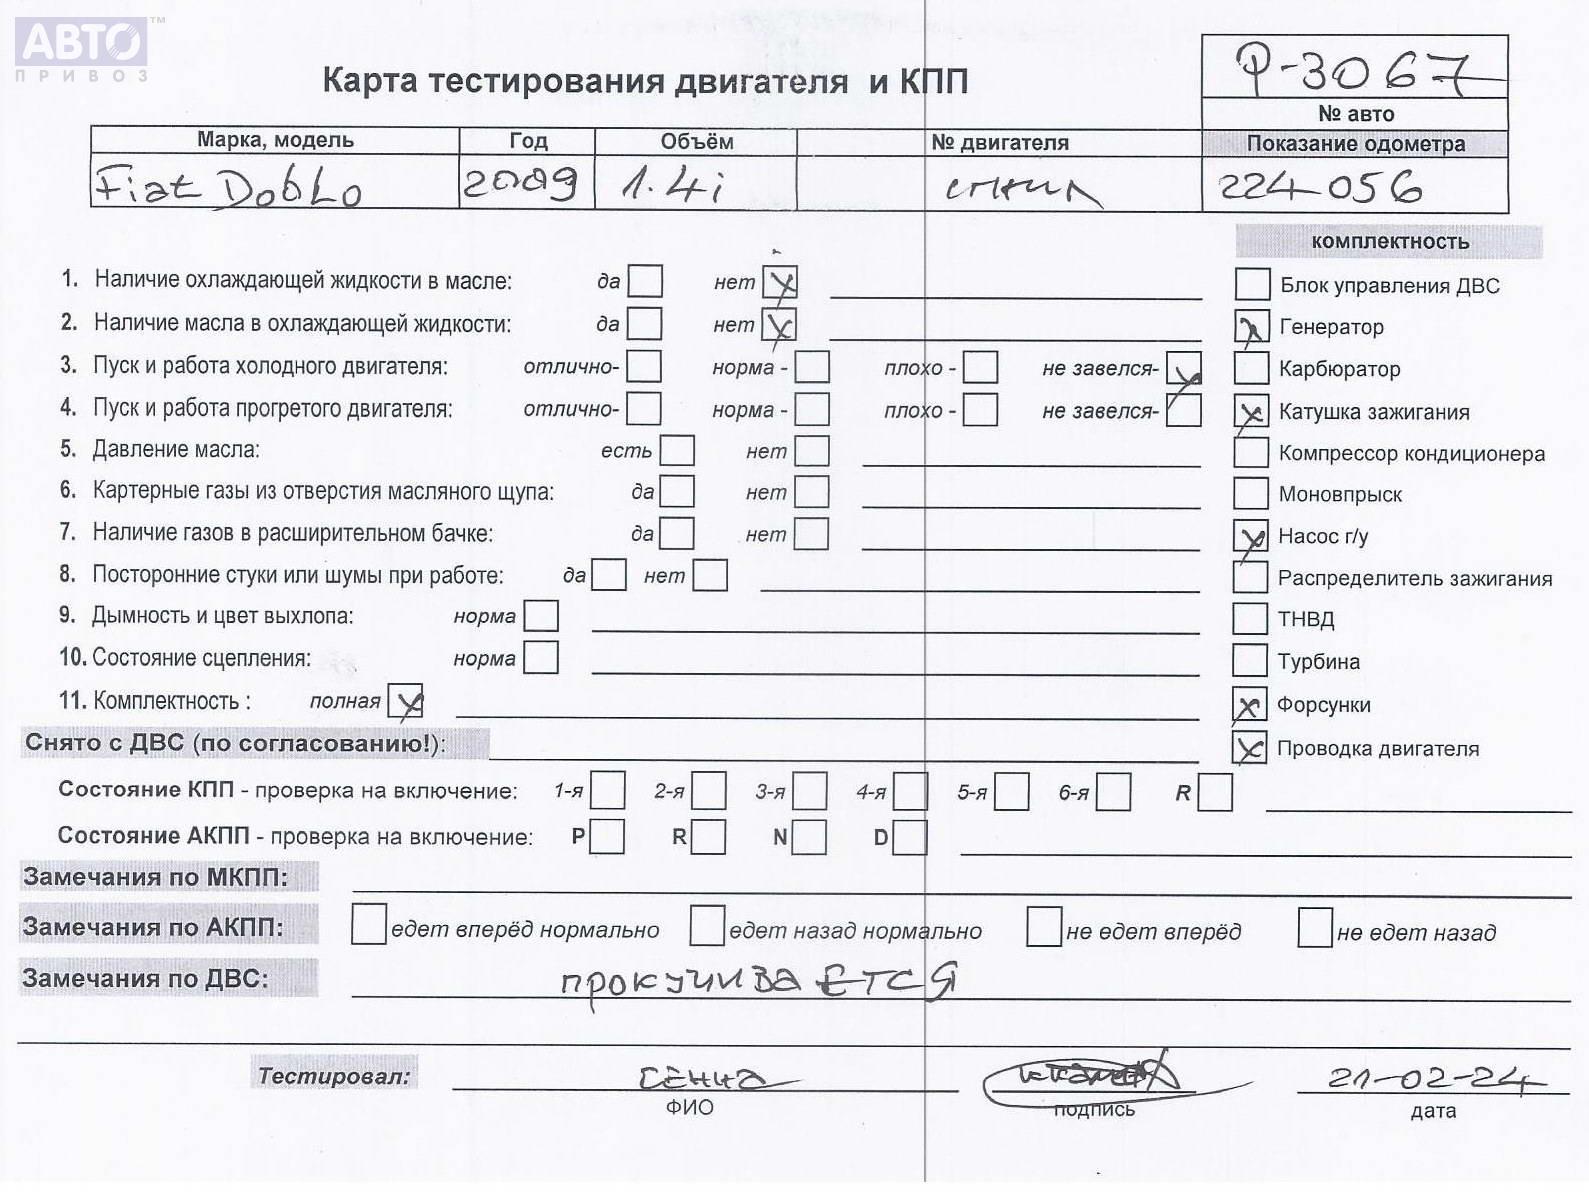 АВТО™
ПРИВОЗ
Карта тестирования двигателя и КПП
Р-3067
№ авто
Марка, модель Год Объём № двигателя Показание одометра
Fiat Doblo 2009 1.4i 224-056
комплектность
1. Наличие охлаждающей жидкости в масле: да нет x
Блок управления ДВС
2. Наличие масла в охлаждающей жидкости: да нет x
x Генератор
3. Пуск и работа холодного двигателя: отлично- норма - плохо - не завелся- x
Карбюратор
4. Пуск и работа прогретого двигателя: отлично- норма - плохо - не завелся-
x Катушка зажигания
5. Давление масла: есть нет
Компрессор кондиционера
6. Картерные газы из отверстия масляного щупа: да нет
Моновпрыск
7. Наличие газов в расширительном бачке: да нет
x Насос г/у
8. Посторонние стуки или шумы при работе: да нет
Распределитель зажигания
9. Дымность и цвет выхлопа: норма
ТНВД
10. Состояние сцепления: норма
Турбина
11. Комплектность : полная x
x Форсунки
Снято с ДВС (по согласованию!):
x Проводка двигателя
Состояние КПП - проверка на включение: 1-я 2-я 3-я 4-я 5-я 6-я R
Состояние АКПП - проверка на включение: P R N D
Замечания по МКПП:
Замечания по АКПП: едет вперёд нормально едет назад нормально не едет вперёд не едет назад
Замечания по ДВС: прокучиваЕТСЯ
Тестировал: 21-02-24
ФИО подпись дата